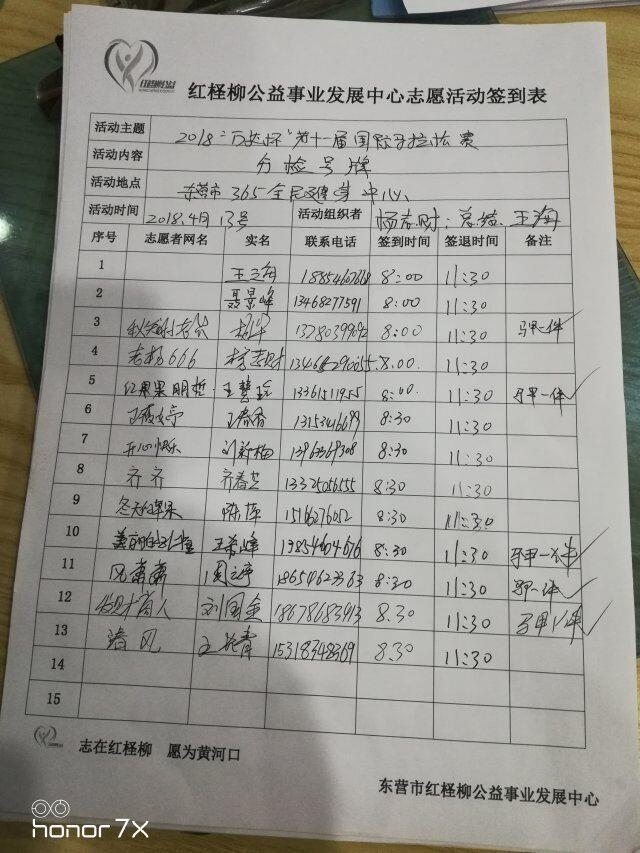 红柽柳公益
红柽柳公益事业发展中心志愿活动签到表
活动主题 2018"万达杯"第十一届国际马拉松赛
活动内容 分检号牌
活动地点 东营市365全民健身中心
活动时间 2018.4月13号 活动组织者 杨志财: 总结: 王海
序号 志愿者网名 实名 联系电话 签到时间 签退时间 备注
1 8:00 11:30
2 聂景峰 13468277591 8:00 11:30
3 8:00 11:30 马甲一件
4 老杨666 8.00 11:30
5 红果果明哲 王慧 13361511955 8:00 11:30 马甲一件
6 13153416699 8:30 11:30
7 开心快乐 刘新梅 8:30 11:30
8 齐齐 齐春芝 13325056155 8:30 11:30
9 15166276052 8:30 11:30
10 13854604676 8:30 11:30 马甲一件
11 风萧萧 8:30 11:30 马甲一件
12 刘国金 18678683913 8.30 11:30 马甲1件
13 春风 15318348369 8.30 11:30
14
15
志在红柽柳 愿为黄河口
东营市红柽柳公益事业发展中心
honor 7X